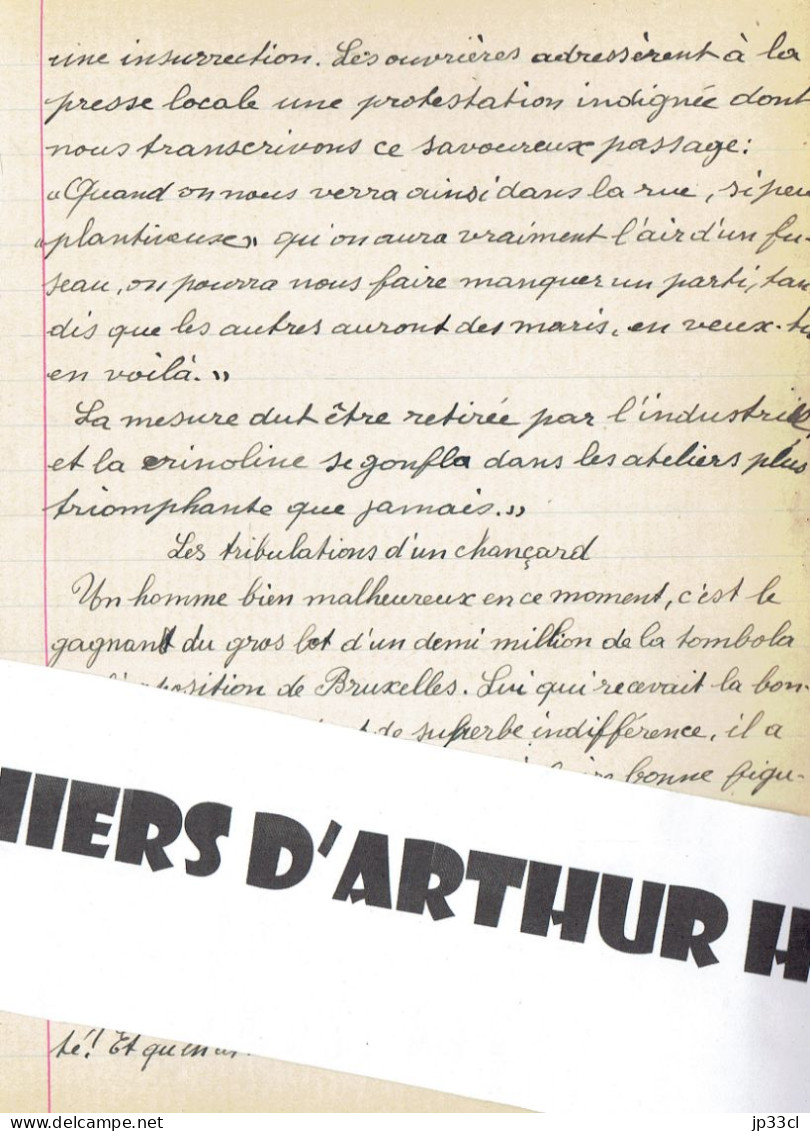 une insurrection. Les ouvrières adressèrent à la
presse locale une protestation indignée dont
nous transcrivons ce savoureux passage:
«Quand on nous verra ainsi dans la rue, si peu
«plantureuse» qu'on aura vraiment l'air d'un fu-
seau, on pourra nous faire manquer un parti, tan
dis que les autres auront des maris, en veux-tu
en voilà.»
La mesure dut être retirée par l'industriel,
et la crinoline se gonfla dans les ateliers plus
triomphante que jamais.»
Les tribulations d'un chançard
Un homme bien malheureux en ce moment, c'est le
gagnant du gros lot d'un demi million de la tombola
position de Bruxelles. Lui qui recevait la bon-
de superbe indifférence, il a
bonne figu-
HIERS D'ARTHUR H
té! Et
delcampe.net
jp33cl